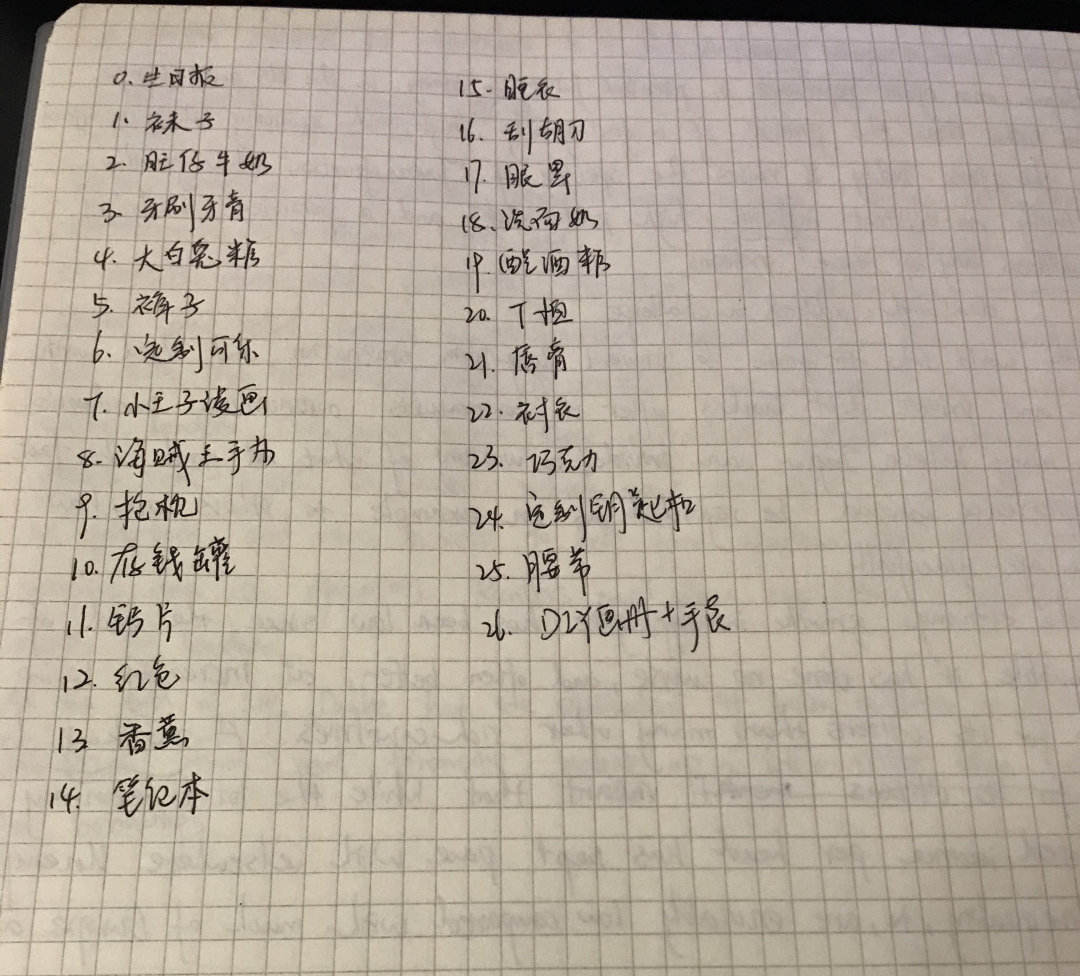 0. 生日报
1. 袜子
2. 旺仔牛奶
3. 牙刷牙膏
4. 大白兔糖
5. 裤子
6. 定制可乐
7. 小王子漫画
8. 海贼王手办
9. 抱枕
10. 存钱罐
11. 钙片
12. 红包
13. 香薰
14. 笔记本
15. 睡衣
16. 刮胡刀
17. 眼罩
18. 洗面奶
19. 醒酒糖
20. T恤
21. 唇膏
22. 衬衣
23. 巧克力
24. 定制钥匙扣
25. 腰带
26. DIY画册+手表